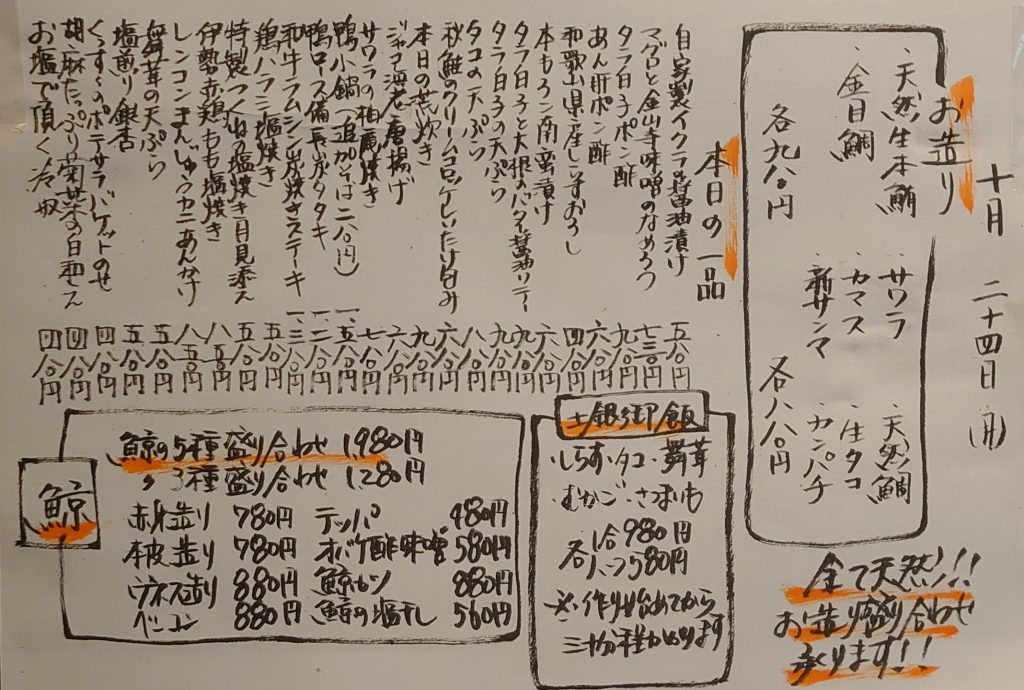 十月 二十四日(月)
お造り
・天然生本鮪 ・サワラ ・天然鯛
・金目鯛 ・カマス ・生タコ
・新サンマ ・カンパチ
各九八〇円
各八八〇円
全て天然!!
お造り盛り合わせ
承ります!!
本日の一品
自家製イクラの醤油漬け 五八〇円
マグロと金山寺味噌のなめろう 七三〇円
タラ白子ポン酢 九八〇円
あん肝ポン酢 六八〇円
和歌山県産しらすおろし 四八〇円
本もろこ南蛮漬け 六八〇円
タラ白子と大根のバター醤油ソテー 九八〇円
タラ白子の天ぷら 九八〇円
タコの天ぷら 八八〇円
秋鮭のクリームコロッケしいたけ包み 六八〇円
本日の荒炊き 九八〇円
ジャコ海老唐揚げ 六八〇円
サワラの柚庵焼き 七八〇円
鴨小鍋(追加そば二八〇円) 一、五八〇円
鴨ロース備長炭タタキ 一、二八〇円
和牛ラムシン炭焼きステーキ 一、三八〇円
鶏ハラミ塩焼き 五八〇円
特製つくねの塩焼き月見添え 五八〇円
伊勢赤鶏もも塩焼き 八五〇円
レンコンまんじゅうカニあんかけ 八五〇円
舞茸の天ぷら 五八〇円
塩煎り銀杏 五八〇円
くんすぅのポテサラバケットのせ 四八〇円
胡麻たっぷり菊菜の白和え 四八〇円
お塩で頂く冷奴 四八〇円
土釜御飯
・しらす・タコ・舞茸
・むかご・さつまいも
各 1合980円
ハーフ580円
※作り始めてから
三十分程かかります
鯨
鯨の5種盛り合わせ 1,980円
〃 3種盛り合わせ 1,280円
赤身造り 780円 テッパ 480円
本皮造り 780円 オバケ酢味噌 580円
ウネス造り 880円 鯨カツ 880円
ベーコン 880円 鯨の塩干し 560円